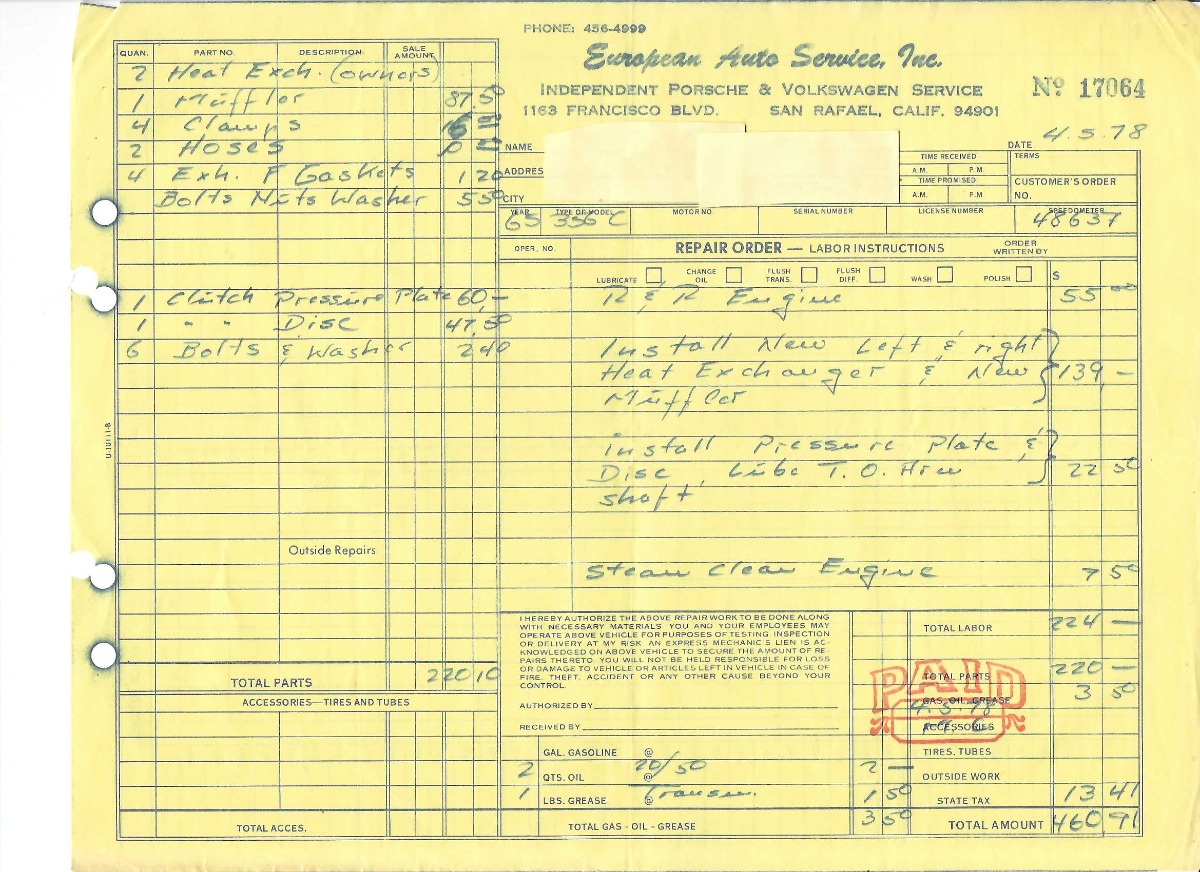 PHONE: 456-4999
European Auto Service, Inc.
INDEPENDENT PORSCHE & VOLKSWAGEN SERVICE
1163 FRANCISCO BLVD. SAN RAFAEL, CALIF. 94901
Nº 17064
QUAN. PART NO. DESCRIPTION SALE AMOUNT
2 Heat Exch. (owners)
1 Muffler 87.50
4 Clamps
2 Hoses
4 Exh. F Gaskets 1 20
Bolts Nuts Washer 5 50
1 Clutch Pressure Plate 60,-
1 " " Disc 47.50
6 Bolts & Washer 2 40
Outside Repairs
TOTAL PARTS 220 10
ACCESSORIES—TIRES AND TUBES
TOTAL ACCES.
U-10111-8
4.5.78
NAME DATE
ADDRES
CITY
TIME RECEIVED
A.M. P.M.
TIME PROMISED
A.M. P.M.
TERMS
CUSTOMER'S ORDER
NO.
YEAR TYPE OR MODEL MOTOR NO. SERIAL NUMBER LICENSE NUMBER SPEEDOMETER
65 356 C 48637
OPER. NO. REPAIR ORDER — LABOR INSTRUCTIONS ORDER WRITTEN BY
LUBRICATE CHANGE OIL FLUSH TRANS. FLUSH DIFF. WASH POLISH $
R & R Engine 55 00
Install New Left & right
Heat Exchanger & New 139,-
Muffler
install Pressure Plate &
Disc, Lube T.O. 22 50
shaft
Steam Clean Engine 7 50
I HEREBY AUTHORIZE THE ABOVE REPAIR WORK TO BE DONE ALONG
WITH NECESSARY MATERIALS. YOU AND YOUR EMPLOYEES MAY
OPERATE ABOVE VEHICLE FOR PURPOSES OF TESTING, INSPECTION
OR DELIVERY AT MY RISK. AN EXPRESS MECHANIC'S LIEN IS AC-
KNOWLEDGED ON ABOVE VEHICLE TO SECURE THE AMOUNT OF RE-
PAIRS THERETO. YOU WILL NOT BE HELD RESPONSIBLE FOR LOSS
OR DAMAGE TO VEHICLE OR ARTICLES LEFT IN VEHICLE IN CASE OF
FIRE, THEFT, ACCIDENT OR ANY OTHER CAUSE BEYOND YOUR
CONTROL.
AUTHORIZED BY
RECEIVED BY
GAL. GASOLINE @
2 QTS. OIL @ 20/50 2 —
1 LBS. GREASE @ Transm. 1 50
TOTAL GAS - OIL - GREASE 3 50
TOTAL LABOR 224 —
TOTAL PARTS 220 —
GAS, OIL, GREASE 3 50
ACCESSORIES
PAID
4.5.78
TIRES. TUBES
OUTSIDE WORK
STATE TAX 13 41
TOTAL AMOUNT 460,91